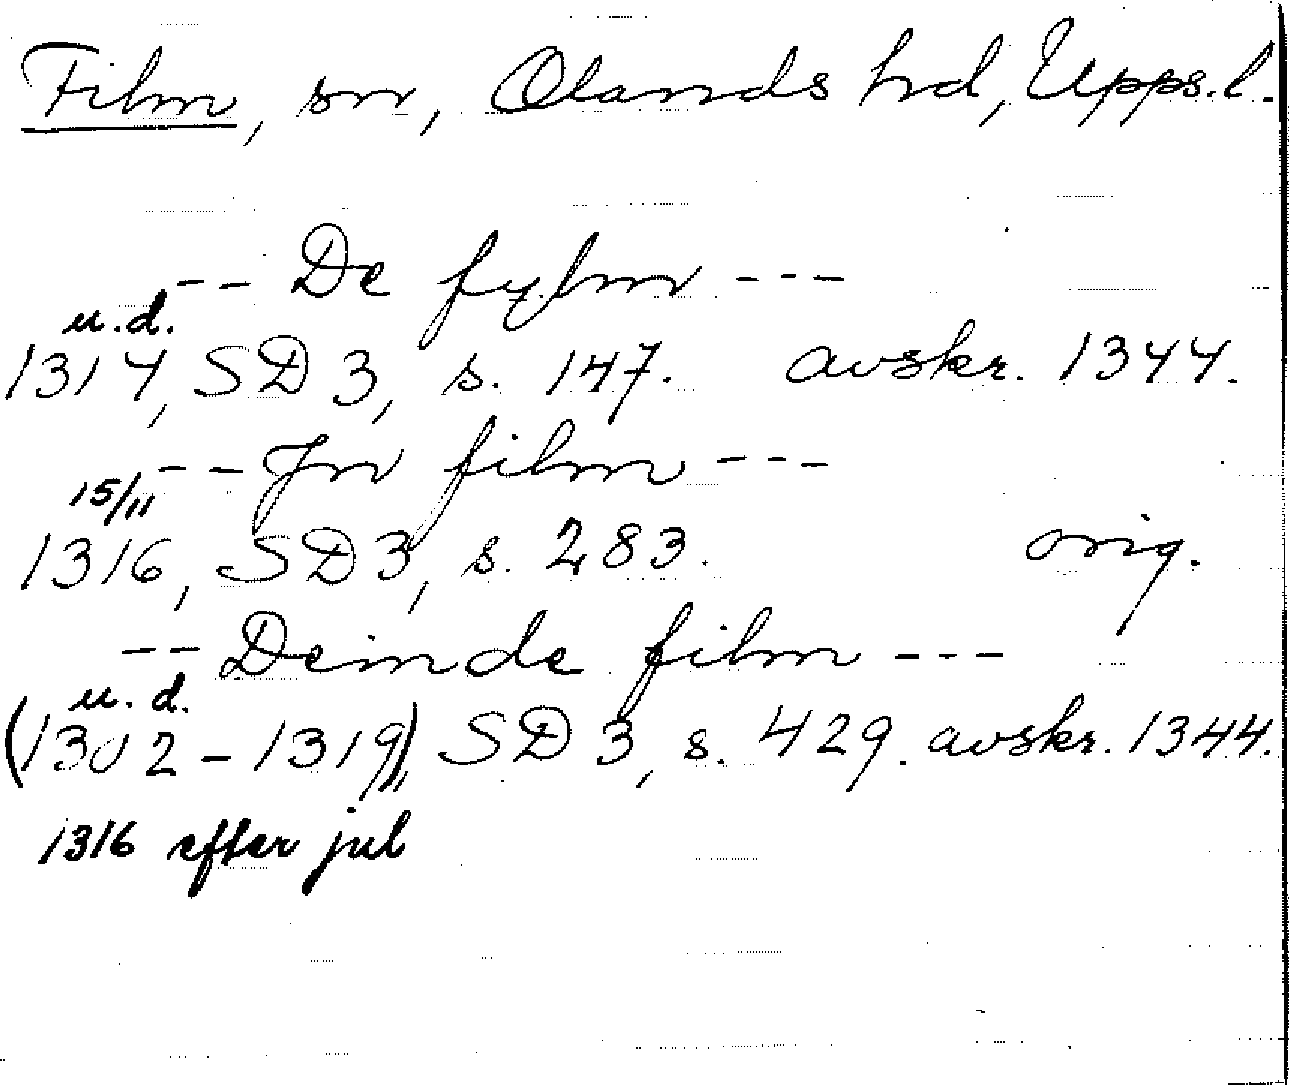 Film, sn, Olands hd, Upps.l.
-- De fylm ---
u.d.
1314, SD 3, s. 147. avskr. 1344.
-- Jn film ---
15/11
1316, SD 3, s. 283. orig.
-- Deinde film ---
u.d.
(1302-1319), SD 3, s. 429. avskr. 1344.
1316 efter jul